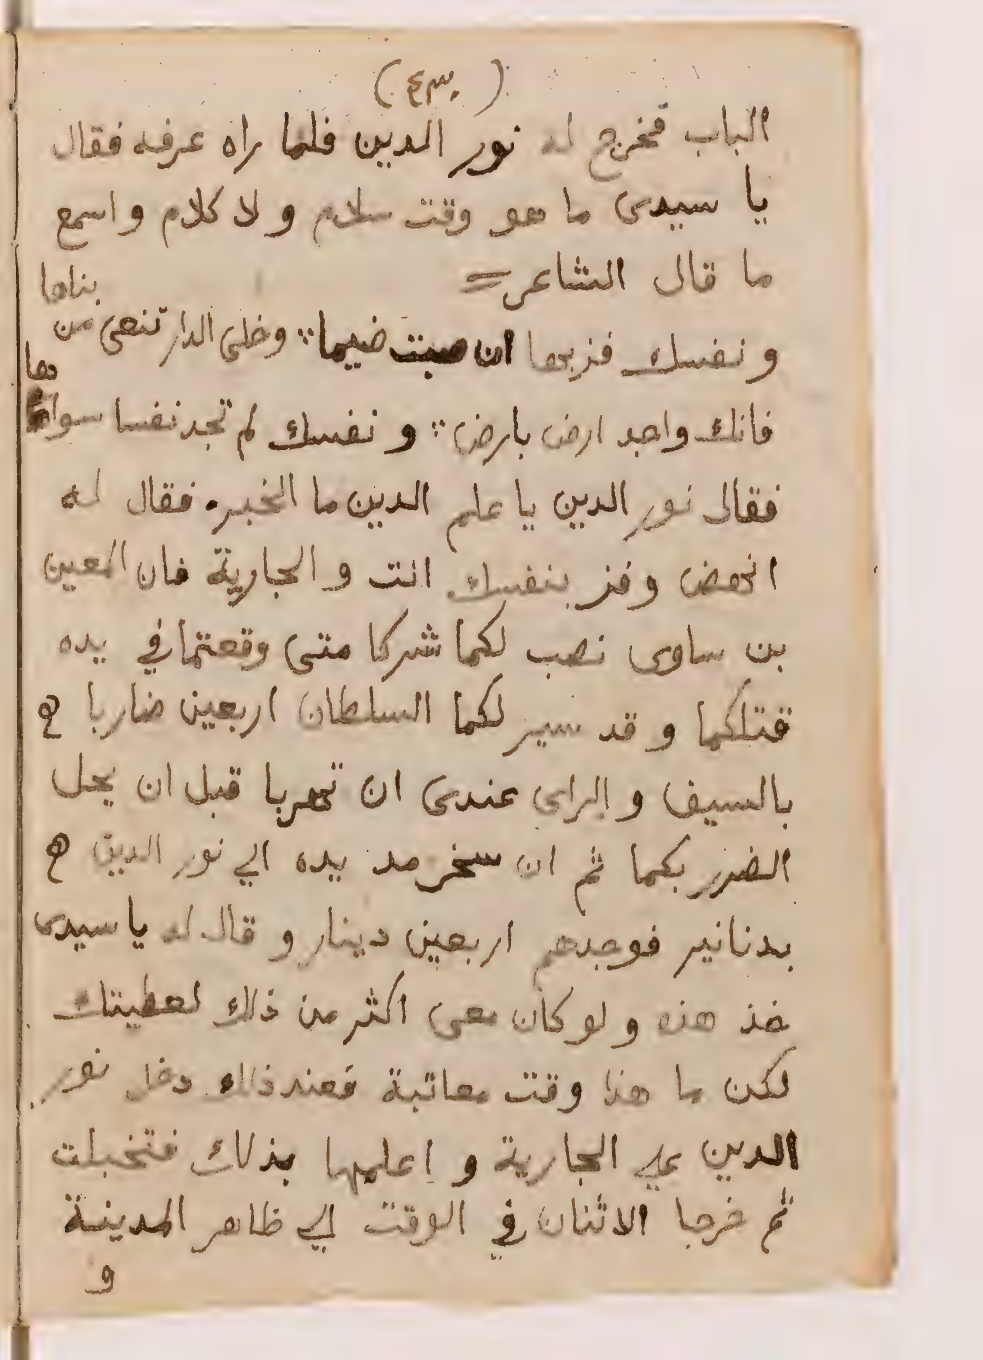 (٤٣٠)
الباب فخرج له نور الدين فلما راه عرفه فقال
يا سيدى ما هو وقت سلام و لا كلام و اسمع
ما قال الشاعر =
و نفسك فزبها ان صبت ضيما ∴ وخلى الدار تنعى من بناها
فانك واجد ارض بارض ∴ و نفسك لم تجد نفسا سواها
فقال نور الدين يا علم الدين ما الخبر. فقال له
انهض وفز بنفسك انت و الجارية فان المعين
بن ساوى نصب لكما شركا متى وقعتما في يده
قتلكما و قد سير لكما السلطان اربعين ضاربا
بالسيف و الراى عندى ان تهربا قبل ان يحل
الضرر بكما ثم ان سنجر مد يده الي نور الدين
بدنانير فوجدهم اربعين دينار و قال له يا سيدى
خذ هذه و لو كان معى اكثر من ذلك لعطيتك
لكن ما هذا وقت معاتبة فعند ذلك دخل نور
الدين علي الجارية و اعلمها بذلك فتخبلت
ثم خرجا الاثنان في الوقت الي ظاهر المدينة
و